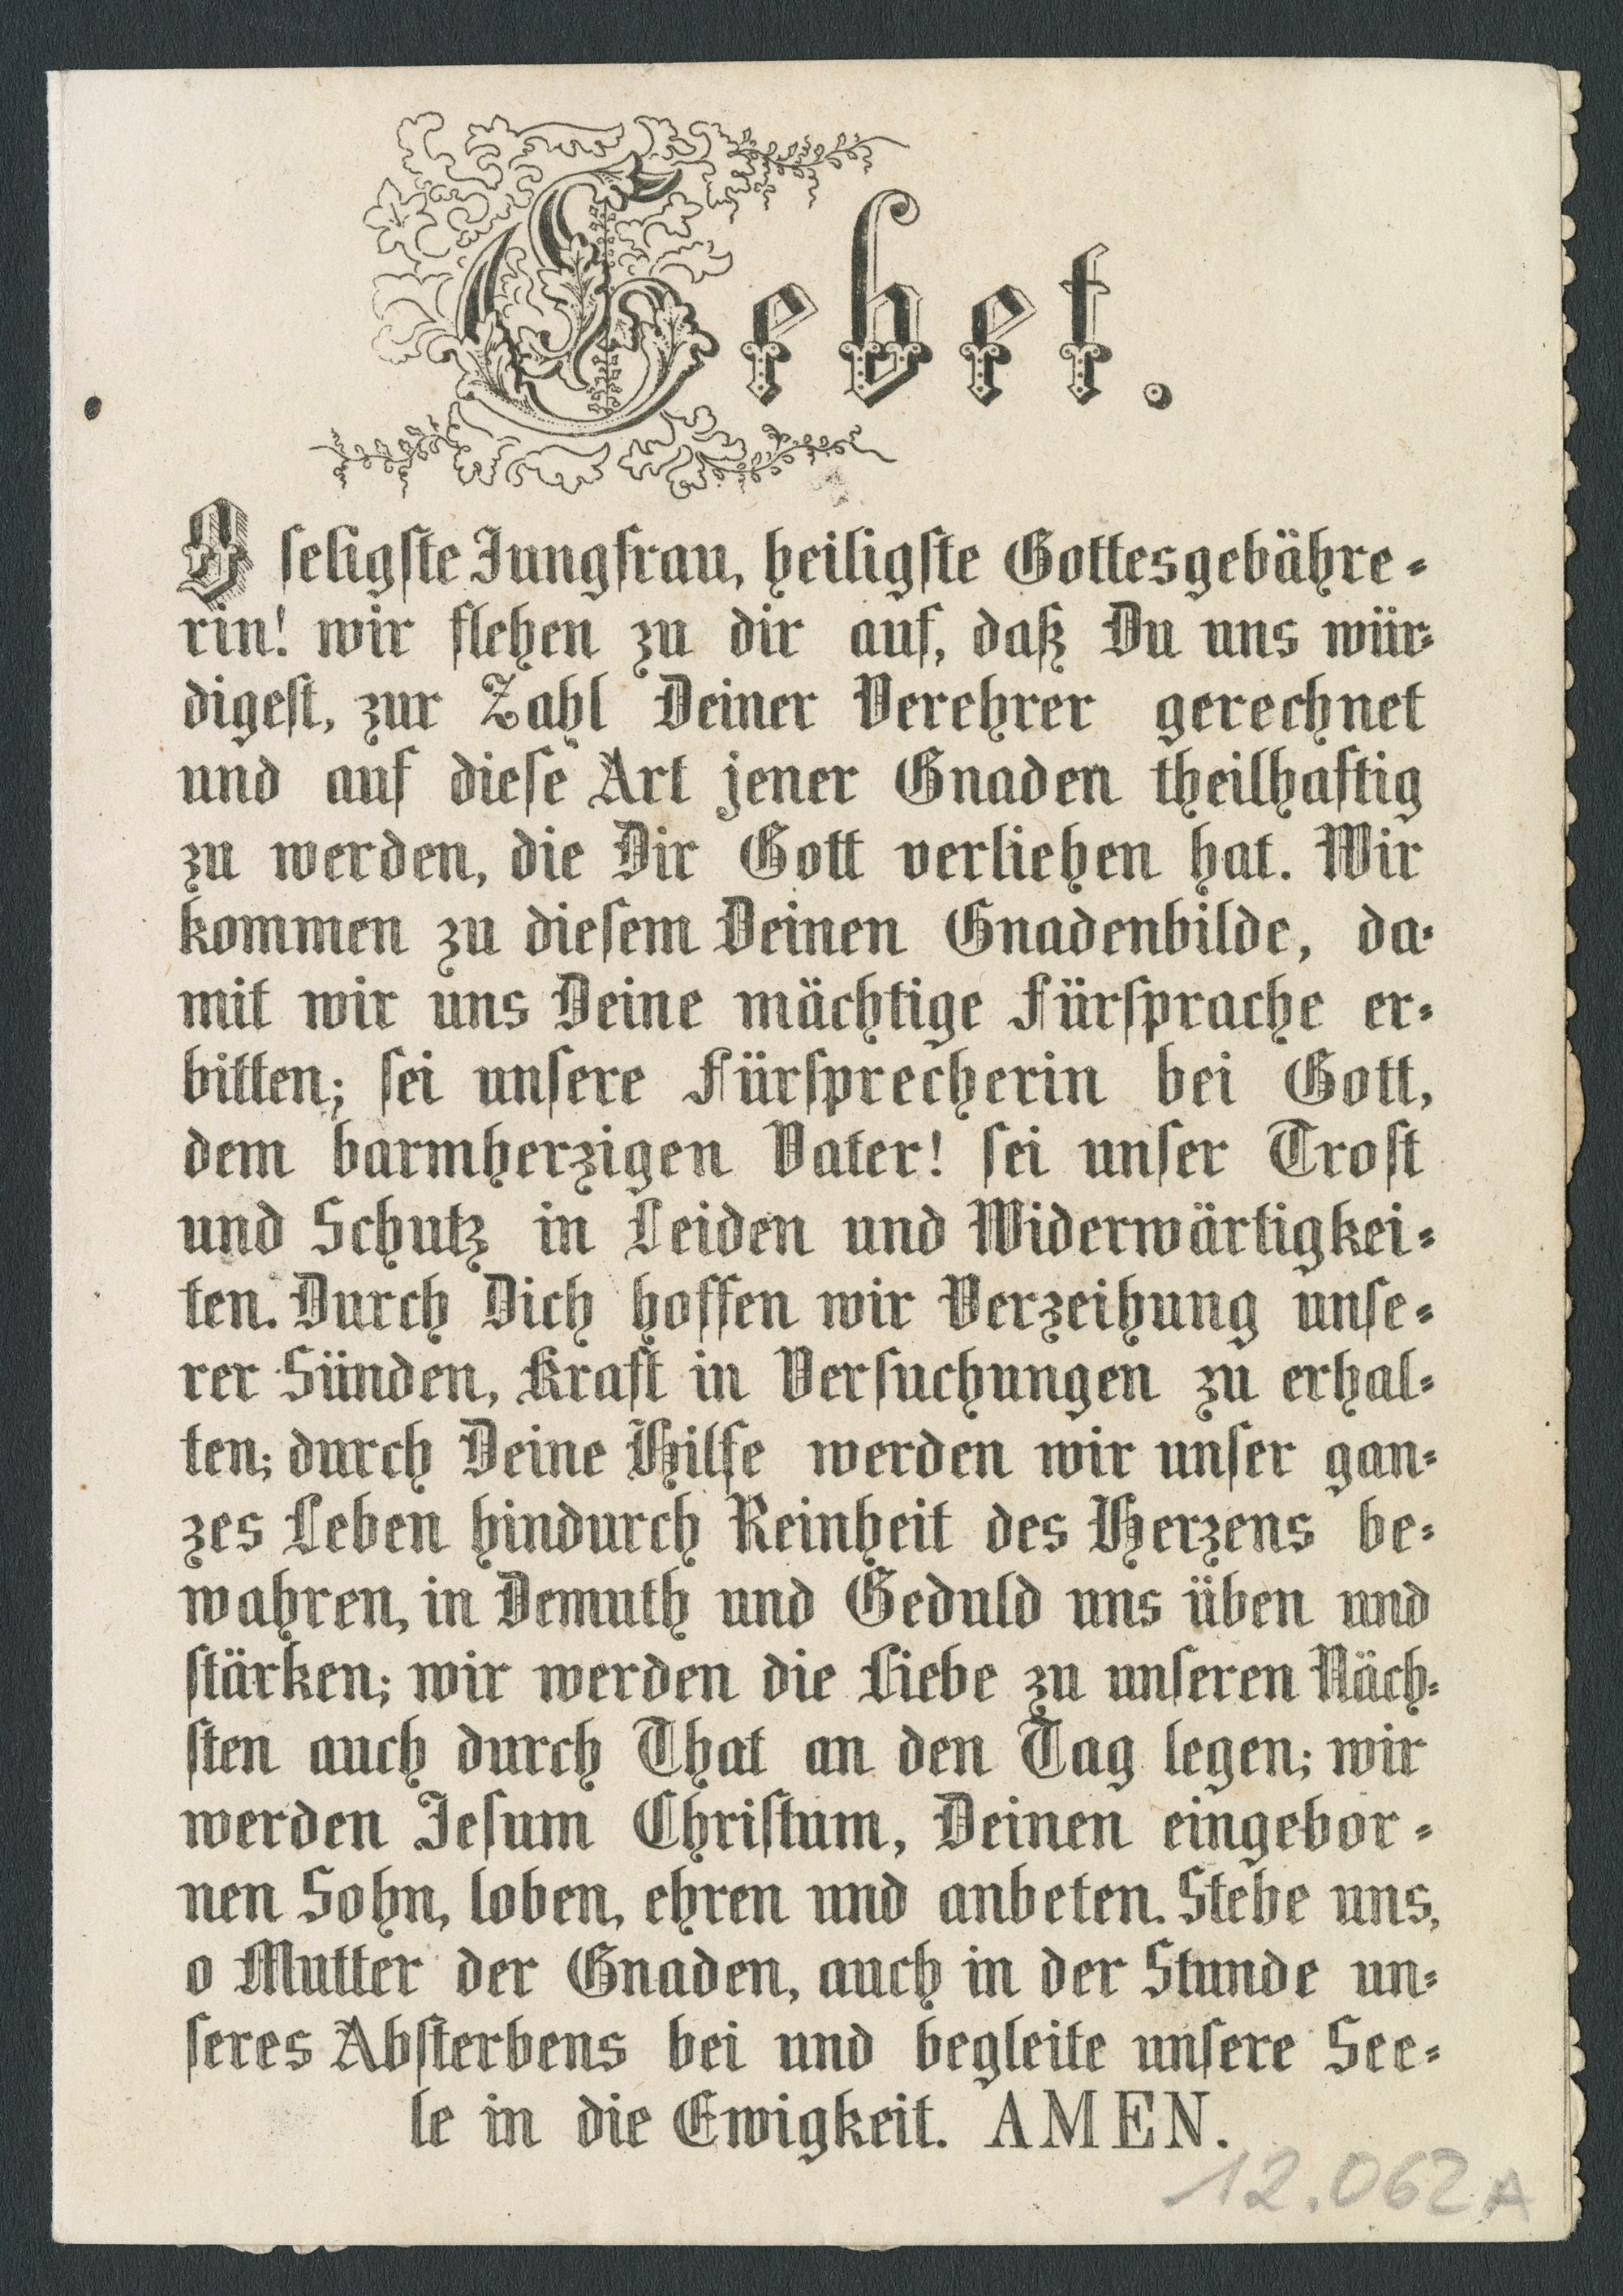 Gebet.
O seligste Jungfrau, heiligste Gottesgebähre-
rin! wir flehen zu dir auf, daß Du uns wür-
digest, zur Zahl Deiner Verehrer gerechnet
und auf diese Art jener Gnaden theilhaftig
zu werden, die Dir Gott verliehen hat. Wir
kommen zu diesem Deinen Gnadenbilde, da-
mit wir uns Deine mächtige Fürsprache er-
bitten; sei unsere Fürsprecherin bei Gott,
dem barmherzigen Vater! sei unser Trost
und Schutz in Leiden und Widerwärtigkei-
ten. Durch Dich hoffen wir Verzeihung unse-
rer Sünden, Kraft in Versuchungen zu erhal-
ten; durch Deine Hilfe werden wir unser gan-
zes Leben hindurch Reinheit des Herzens be-
wahren, in Demuth und Geduld uns üben und
stärken; wir werden die Liebe zu unseren Näch-
sten auch durch That an den Tag legen; wir
werden Jesum Christum, Deinen eingebor-
nen Sohn, loben, ehren und anbeten. Stehe uns,
o Mutter der Gnaden, auch in der Stunde un-
seres Absterbens bei und begleite unsere See-
le in die Ewigkeit. AMEN.
12.062A